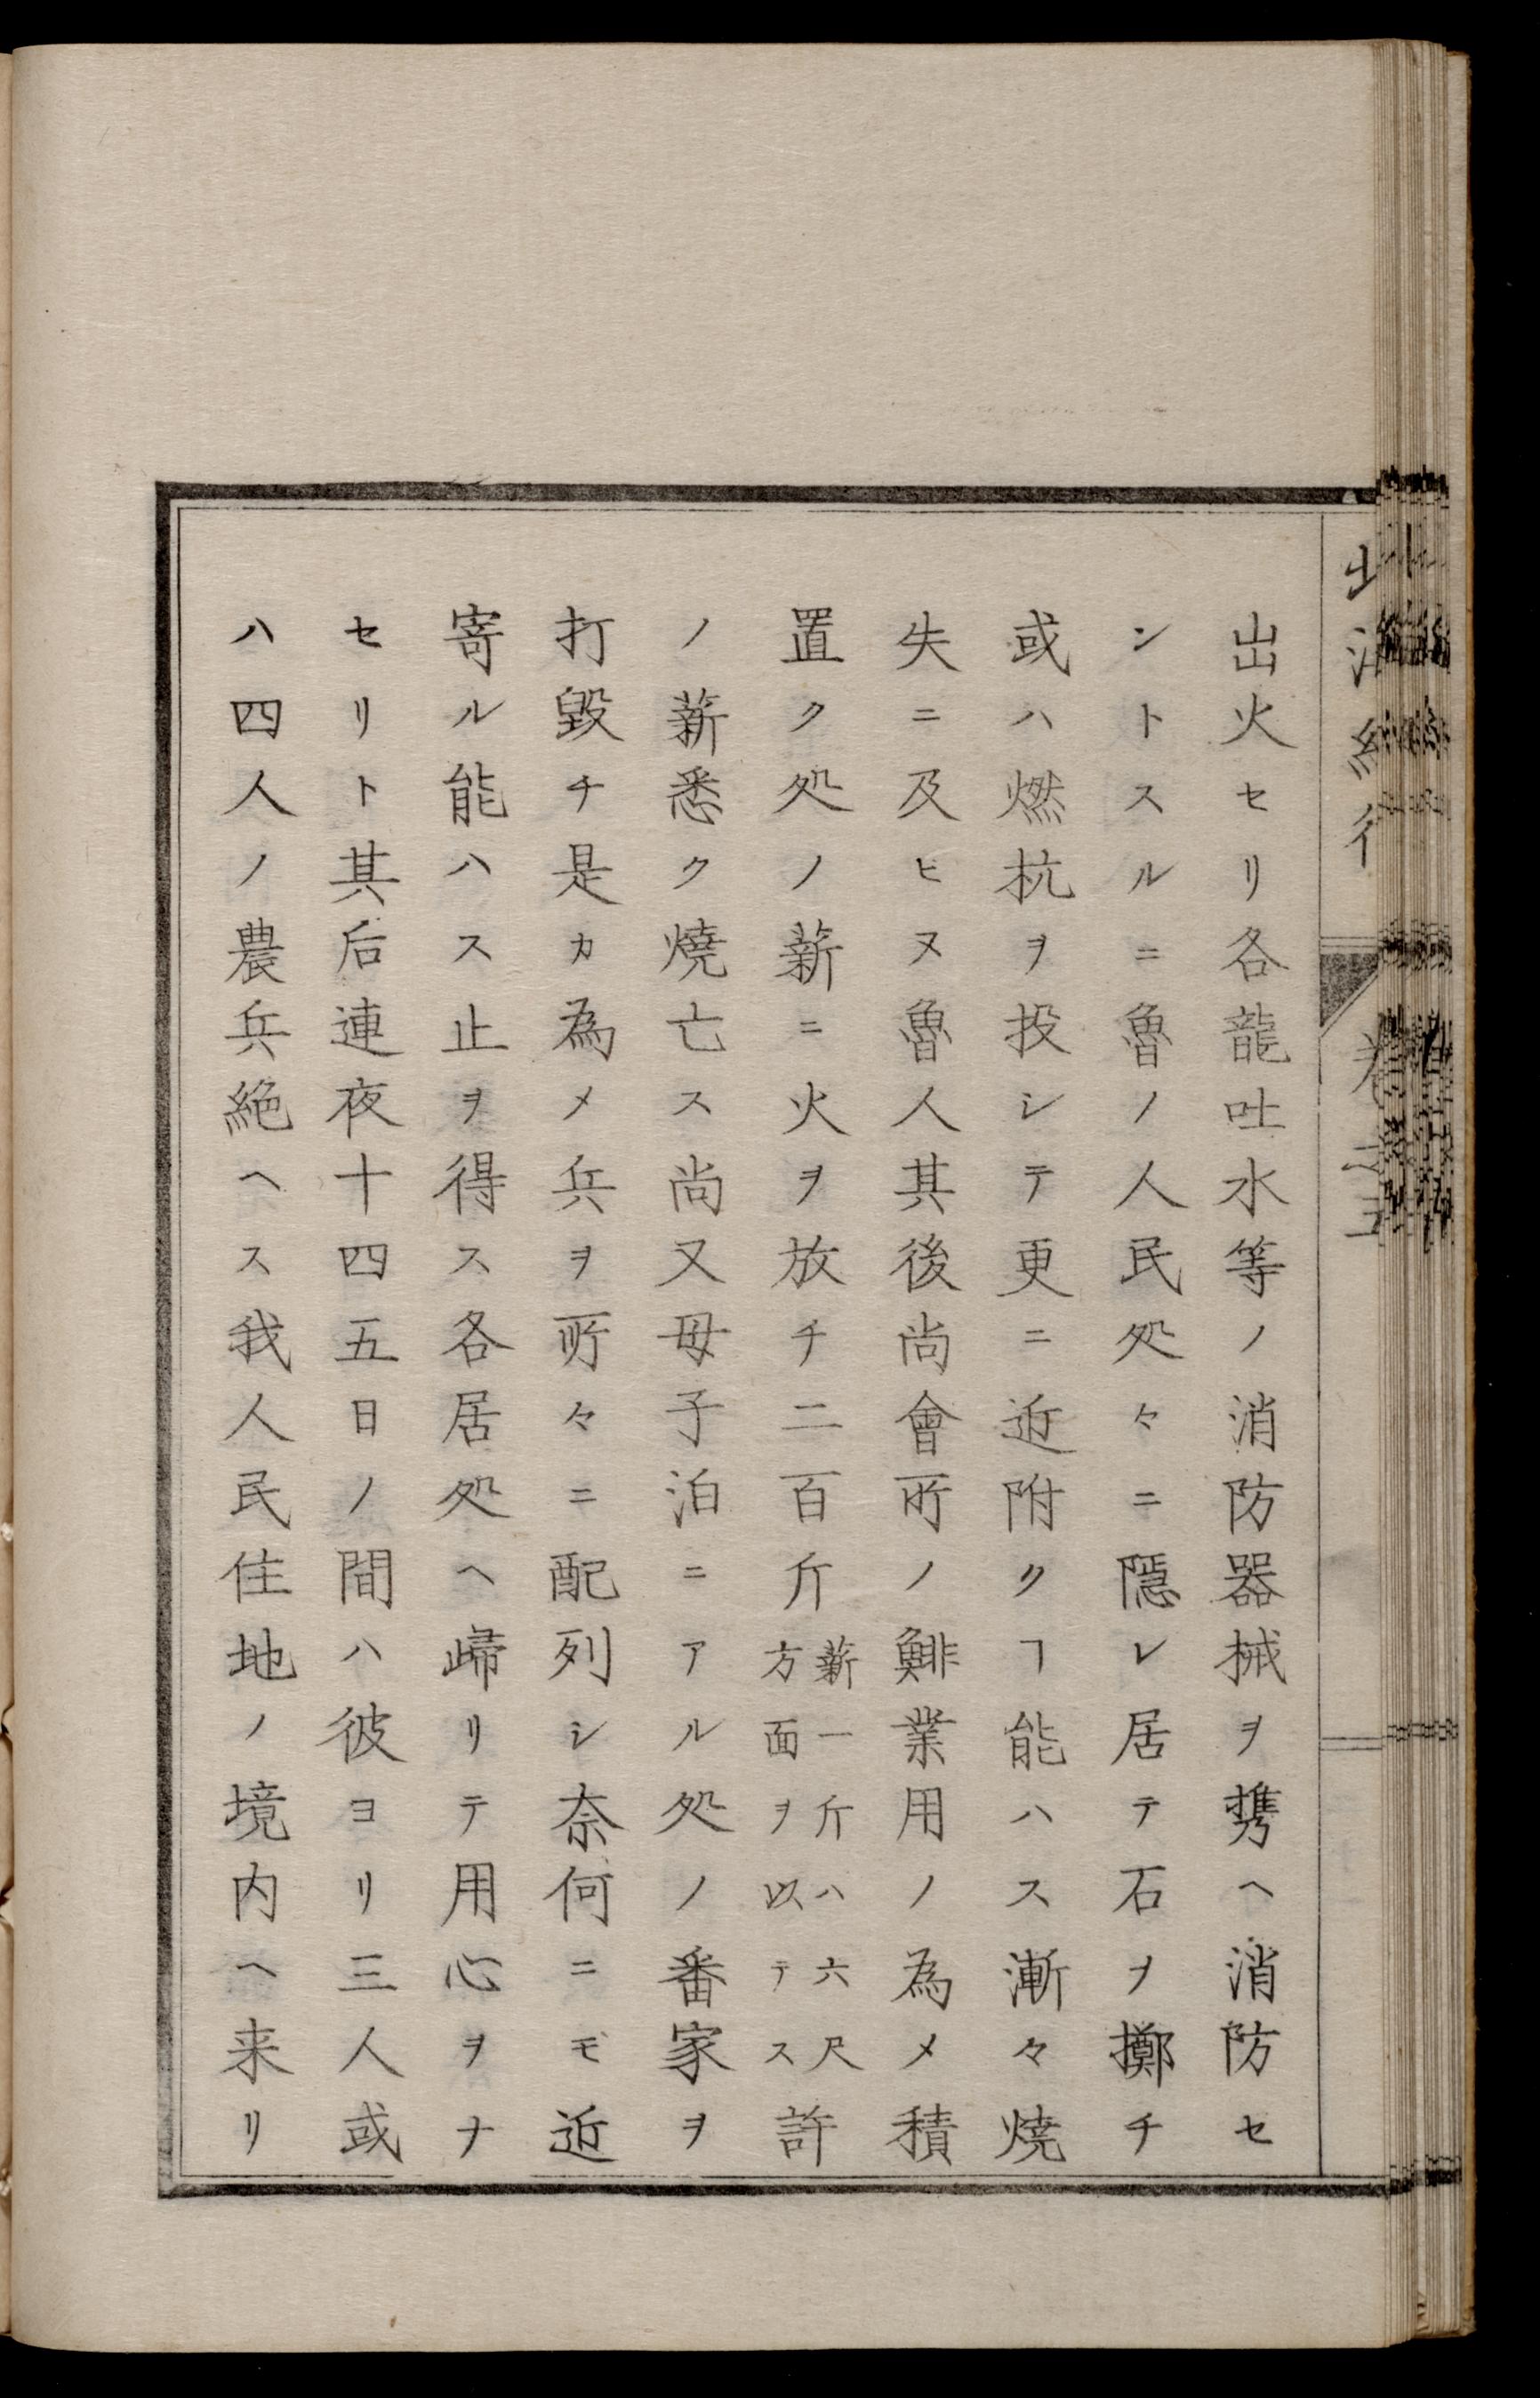 出火セリ各龍吐水等ノ消防器械ヲ携ヘ消防セ
ントスルニ魯ノ人民処々ニ隠レ居テ石ヲ擲チ
或ハ燃杭ヲ投シテ更ニ近附クヿ能ハス漸々焼
失ニ及ヒヌ魯人其後尚會所ノ鯡業用ノ為メ積
置ク処ノ薪ニ火ヲ放チ二百斤薪一斤ハ六尺方面ヲ以テス許
ノ薪悉ク燒亡ス尚又母子泊ニアル処ノ番家ヲ
打毀チ是カ為メ兵ヲ所々ニ配列シ奈何ニモ近
寄ル能ハス止ヲ得ス各居処ヘ歸リテ用心ヲナ
セリト其后連夜十四五日ノ間ハ彼ヨリ三人或
ハ四人ノ農兵絶ヘス我人民住地ノ境内ヘ来リ